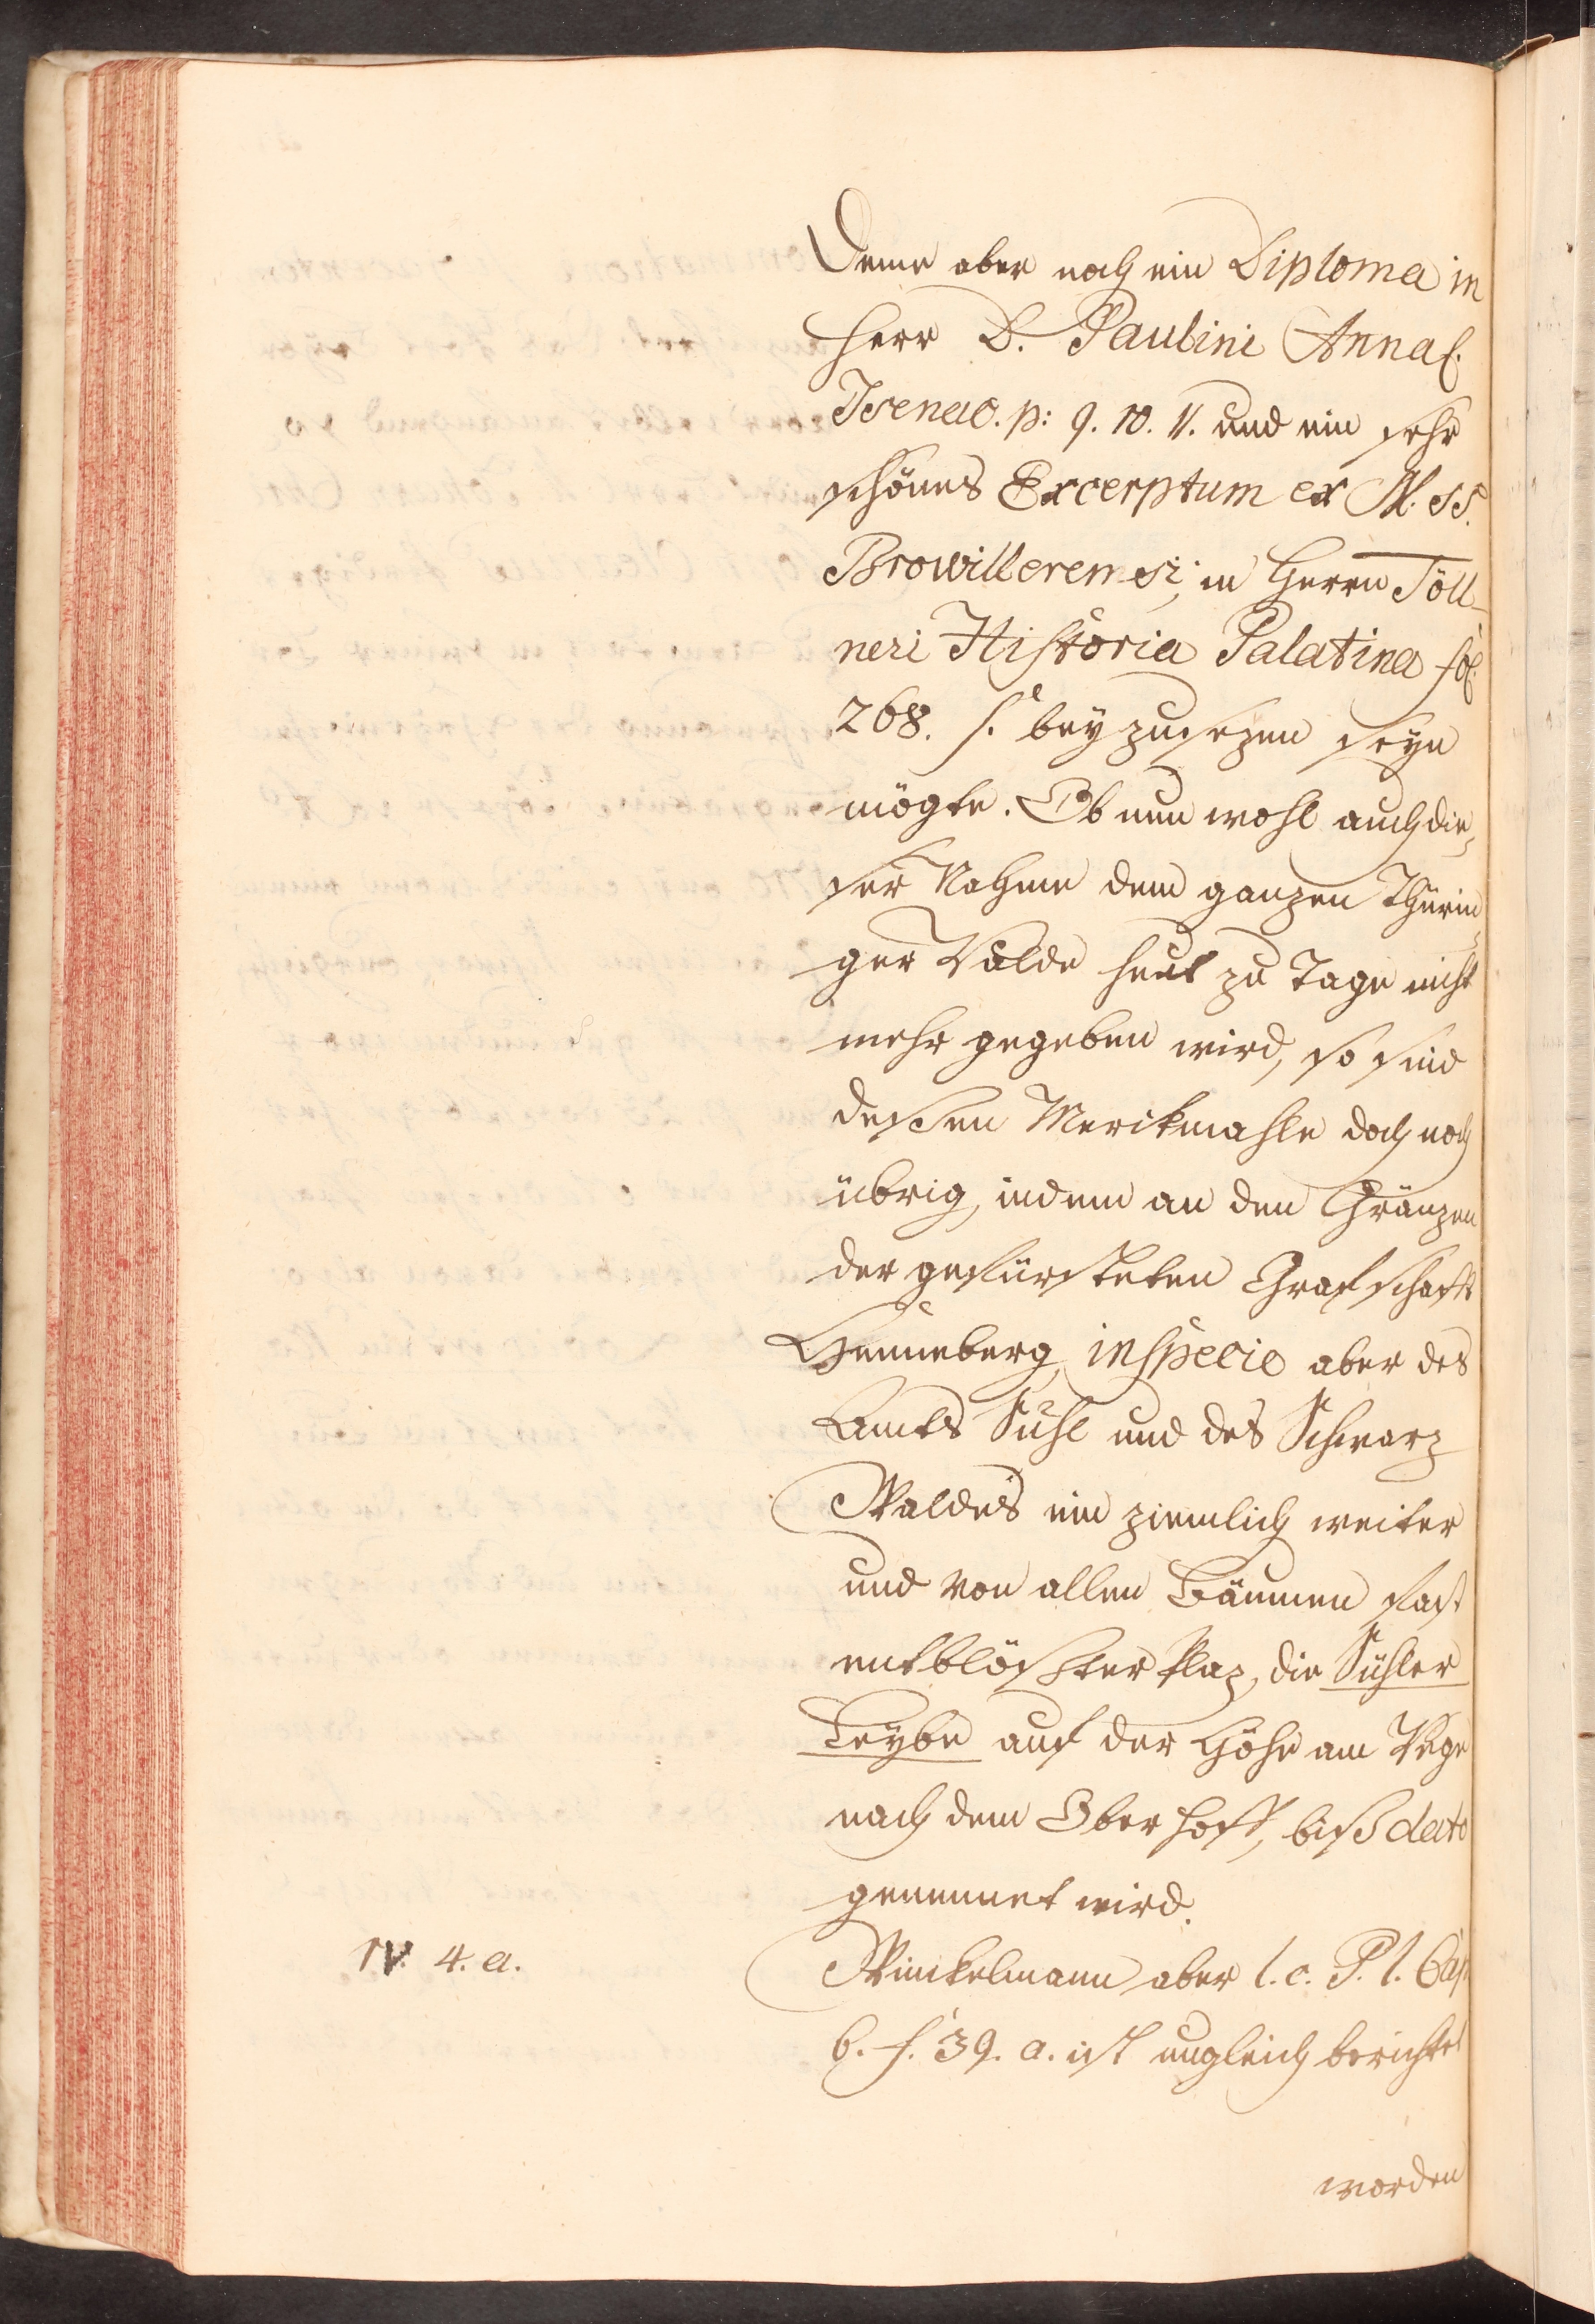 Deme aber noch ein Diploma in
Herr D. Paulini Annal.
Isenac. p: 9. 10. 11. und ein sehr
schönes Excerptum ex M. SS.
Browilleremsi, in Herrn Töll-
neri Historia Palatina fol.
268. s. bey zusezen seyn
mögte. Ob nun wohl auch die-
ser Nahme dem ganzen Thürin-
ger Walde heut zu Tage nicht
mehr gegeben wird, so sind
deßen Merckmahle doch noch
übrig, indem an den Gränzen
der gefürsteten Grafschafft
Henneberg, in specie aber des
Amts Suhl und des Schwarz
Waldes ein ziemlich weiter
und von allen Bäumen fast
entblößter Plaz, die Suhler
Leybe auf der Höhe am Wege
nach dem Oberhoff, biß dato
genennet wird.
IV. 4. a.
Winckelmann aber l. c. P. 1. Cap.
6. f. 39. a. ist ungleich berichtet
worden